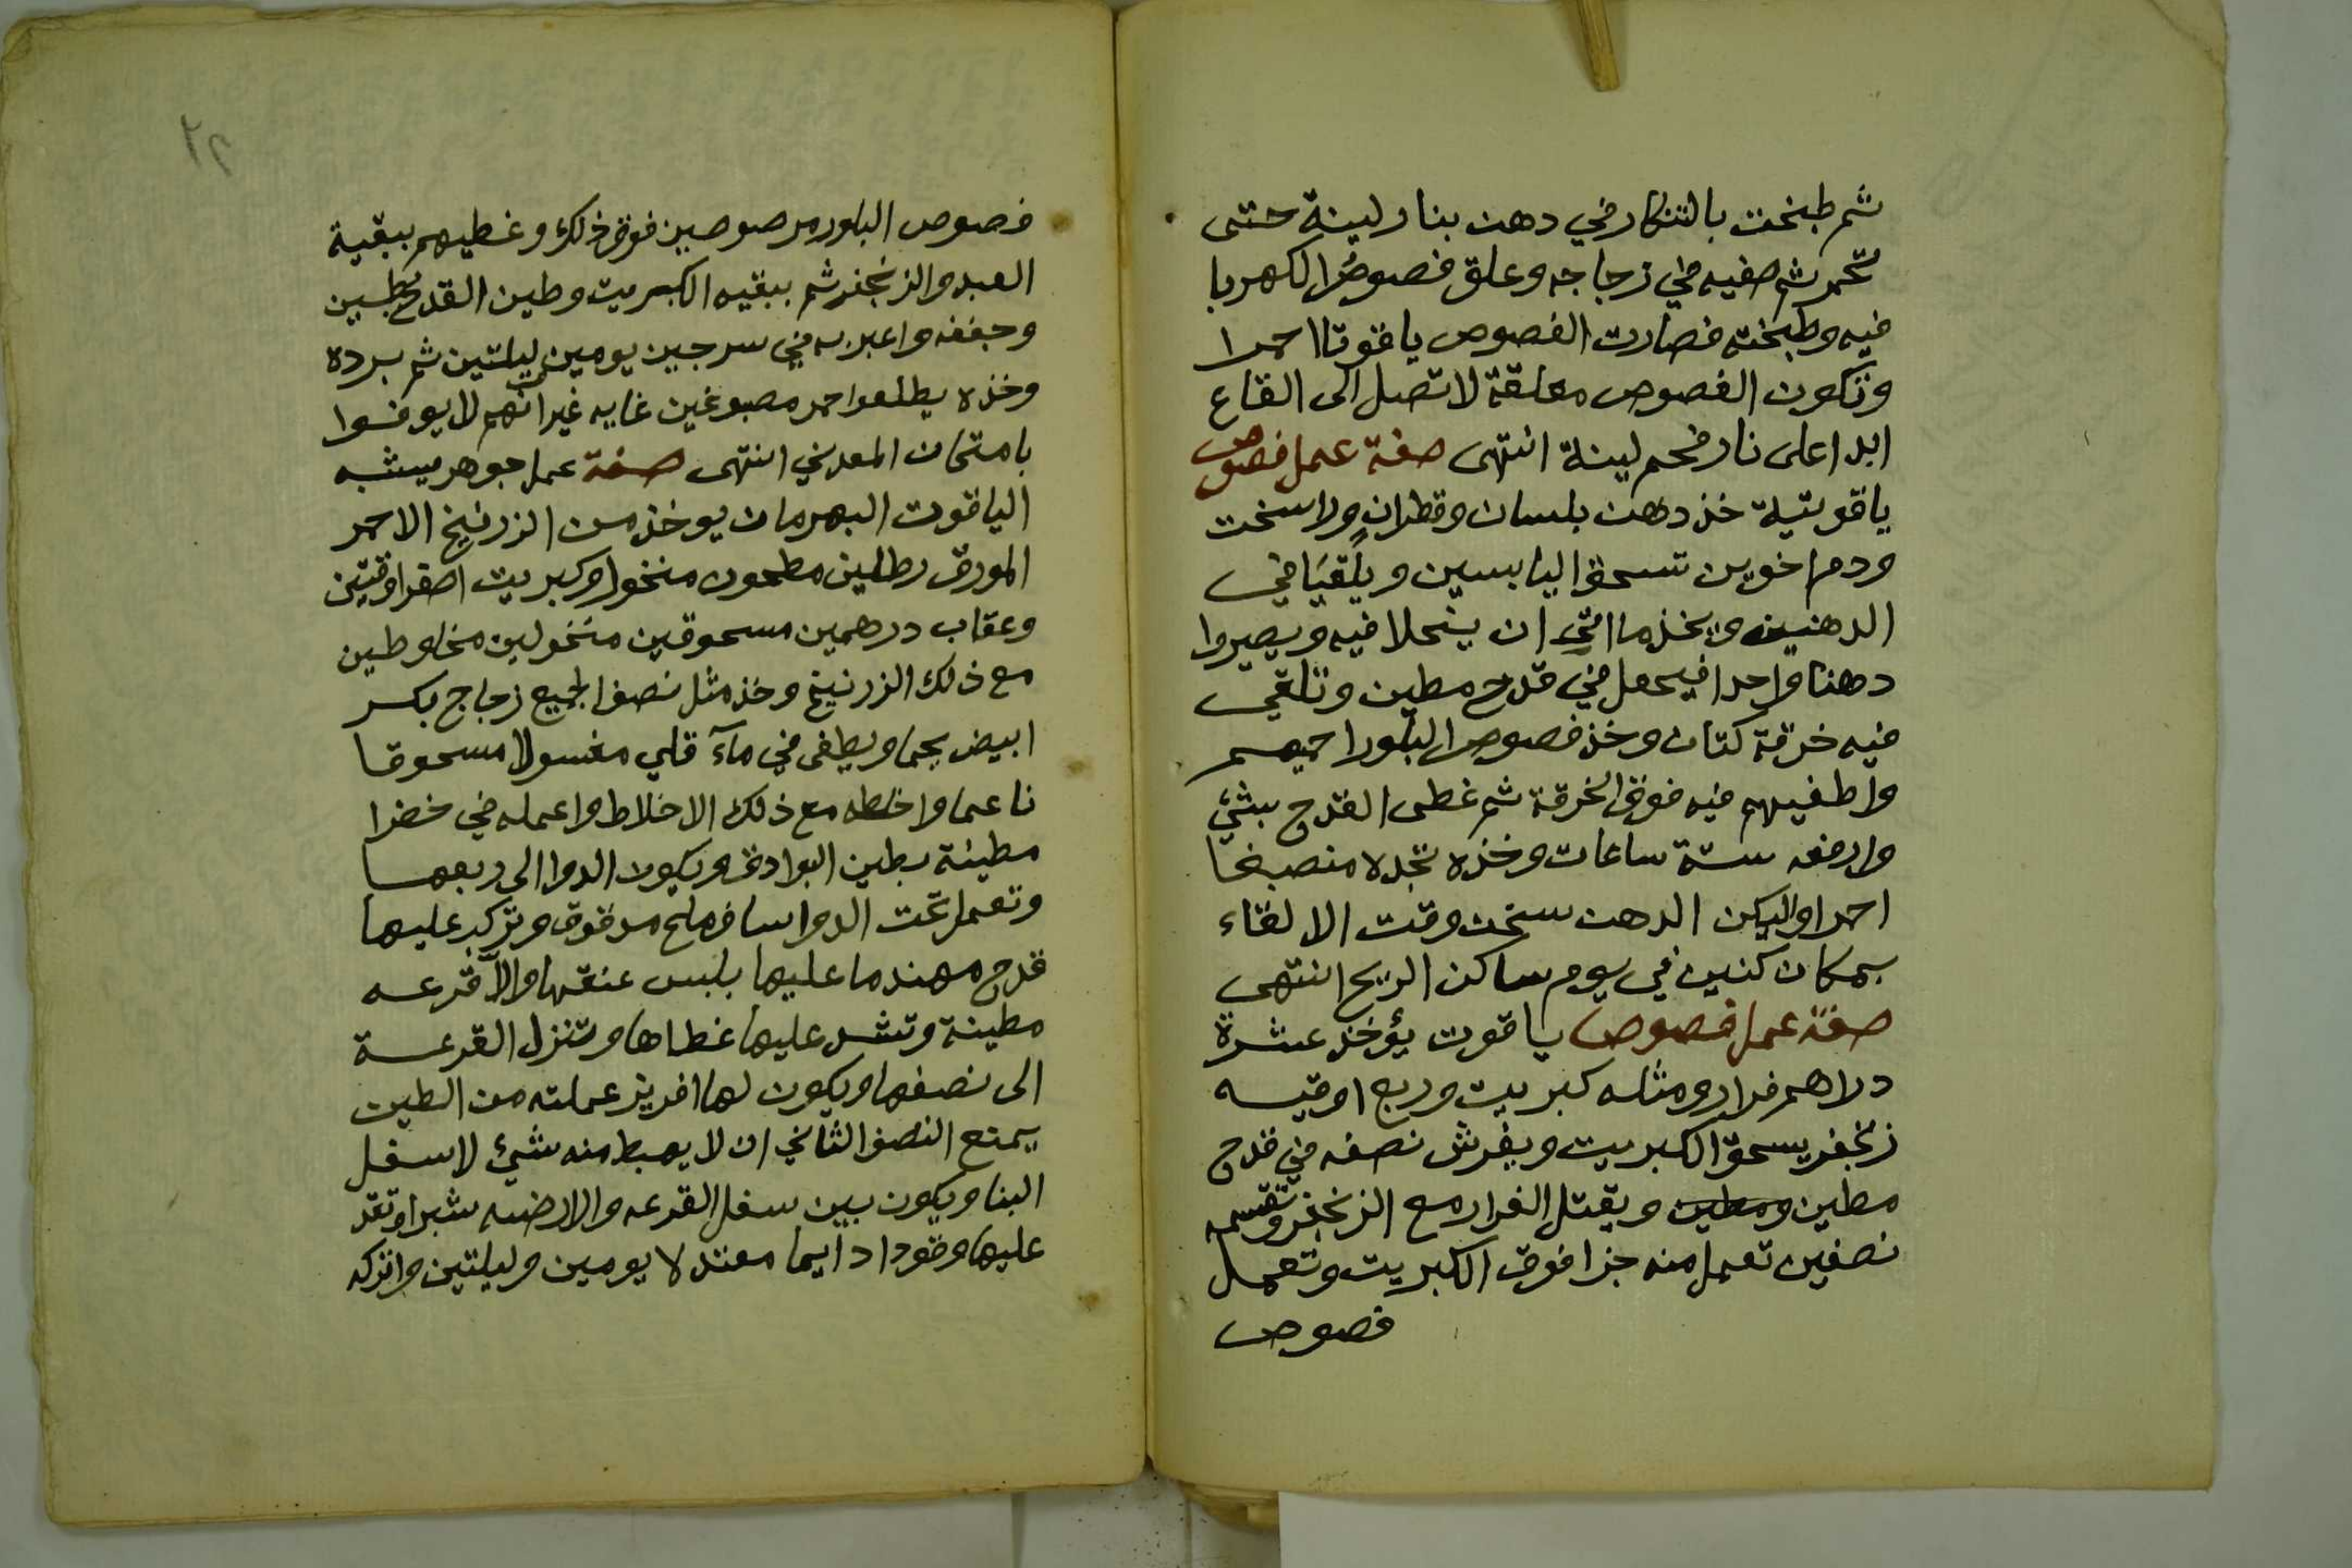 ثم طبخت بالتنكار في دهن بنار لينة حتى
تحمر ثم صفيه في زجاجه وعلق فصوص الكهربا
فيه وطبخته فصارت الفصوص ياقوتا احمرا
وتكون الفصوص معلقة لا تصل الى القاع
ابدا على نار فحم لينة انتهى صفة عمل فصوص
ياقوتية خذ دهن بلسان وقطران وراسخت
ودم اخوين تسحق اليابسين ويلقيا في
الدهنين ويخذما الى ان ينحلا فيه ويصيروا
دهنا واحدا فيجعل في قدح مطين وتلقي
فيه خرقة كتان وخذ فصوص البلور احيهم
واطفيهم فيه فوق الخرقة ثم غطى القدح بشئ
وارفعه ستة ساعات وخذه تجده منصبغا
احمرا وليكن الدهن سخن وقت الالقاء
بمكان كنين في يوم ساكن الريح انتهى
صفة عمل فصوص ياقوت يؤخذ عشرة
دراهم فرار ومثله كبريت وربع اوقيه
زنجفر يسحق الكبريت ويفرش نصفه في قدح
مطين ومطين ويقتل الفرار مع الزنجفر وتقسمه
نصفين تعمل منه جزا فوق الكبريت وتعمل
فصوص
٢٢
فصوص البلور مرصوصين فوق ذلك وغطيهم ببقية
العبد والزنجفر ثم ببقيه الكبريت وطين القدح بطين
وجففه واعبر به في سرجين يومين ليلتين ثم برده
وخذه يطلعوا حمر مصبوغين غايه غير انهم لا يوفوا
بامتحان المعدني انتهى صفة عمل جوهر يشبه
الياقوت البهرمان يوخذ من الزرنيخ الاحمر
المورق رطلين مطحون منخول وكبريت اصفر اوقيتين
وعقاب درهمين مسحوقين منخولين مخلوطين
مع ذلك الزرنيخ وخذ مثل نصف الجميع زجاج بكسر
ابيض يحما ويطفى في مآء قلي مغسولا مسحوقا
ناعما واخلطه مع ذلك الاخلاط واعمله في خضرا
مطينة بطين البوادق ويكون الدوا الى ربعها
وتعمل تحت الدوا ساف ملح مدقوق وتركب عليها
قدح مهندما عليها بلبس عنقها والا قرعه
مطينة وتشد عليها غطاها وتنزل القرعة
الى نصفها ويكون لها افريز عملته من الطين
يمنع النصف الثاني ان لا يهبط منه شئ لاسفل
البنا ويكون بين سفل القرعه والارضيه شبرا وتقد
عليها وقودا دايما معتدلا يومين وليلتين واتركه